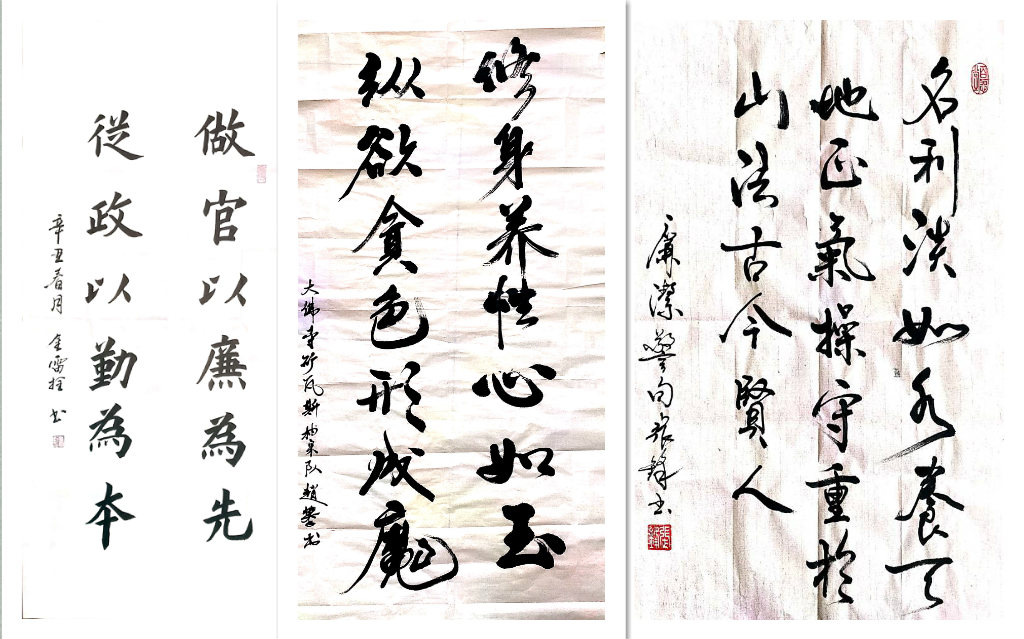 做官以廉為先
從政以勤為本
辛丑春月 金雷拴书
修身养性心如玉
纵欲貪色形成魔
大佛寺矿瓦斯抽采队 趙书
名利淡如水養天
地正氣操守重於
山法古今賢人
廉潔警句 張鋒书